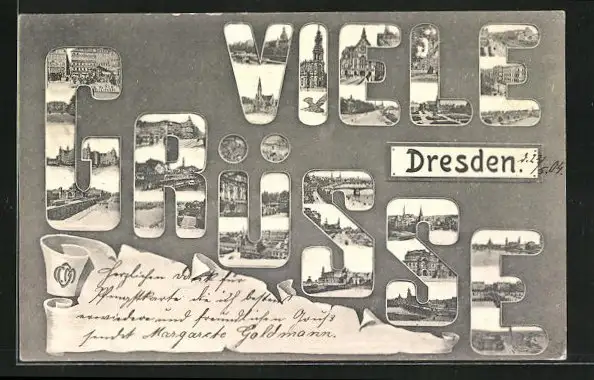 VIELE
GRÜSSE
Dresden.
Herzlichen Dank für
Pfingstkarte die ich bestens
erwiedere und freundlichen Gruß
sendet Margarete Goldmann.